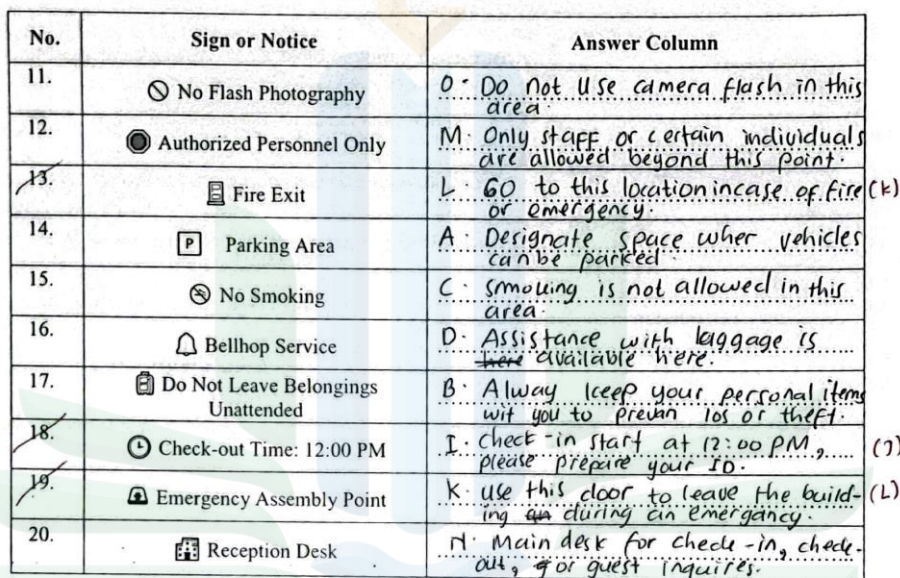 No. Sign or Notice Answer Column
11. No Flash Photography O. Do not Use camera flash in this
area.
12. Authorized Personnel Only M. Only staff or certain individuals
are allowed beyond this point.
13. Fire Exit L. GO to this location incase of fire (k)
or emergency.
14. P Parking Area A. Designate space wher vehicles
can be parked.
15. No Smoking C. smouing is not allowed in this
area.
16. Bellhop Service D. Assistance with laggage is
here available here.
17. Do Not Leave Belongings B. Alway keep your personal items
Unattended wit you to prevan los or theft.
18. Check-out Time: 12:00 PM I. check-in start at 12:00 PM, (J)
please prepare your ID.
19. Emergency Assembly Point K. use this door to leave the build- (L)
ing an during an emergancy.
20. Reception Desk N. Main desk for check-in, check-
out, or guest inquires.